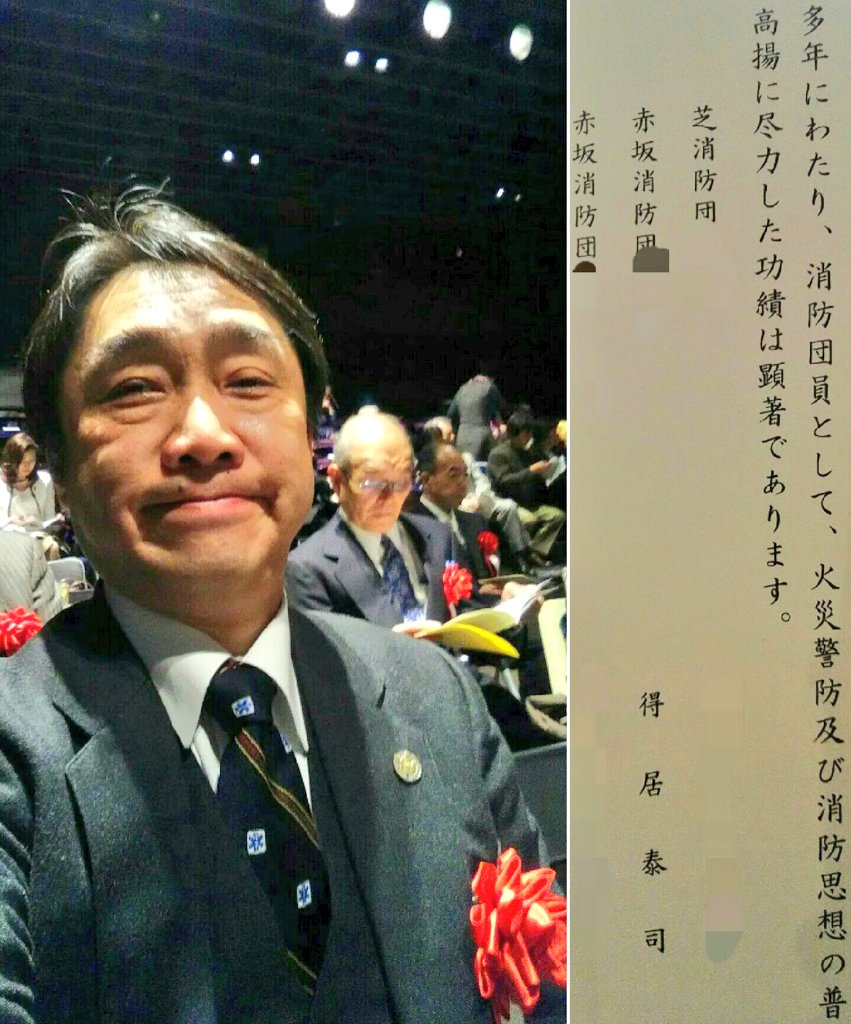 多年にわたり、消防団員として、火災警防及び消防思想の普
高揚に尽力した功績は顕著であります。
芝消防団
赤坂消防団 得居泰司
赤坂消防団